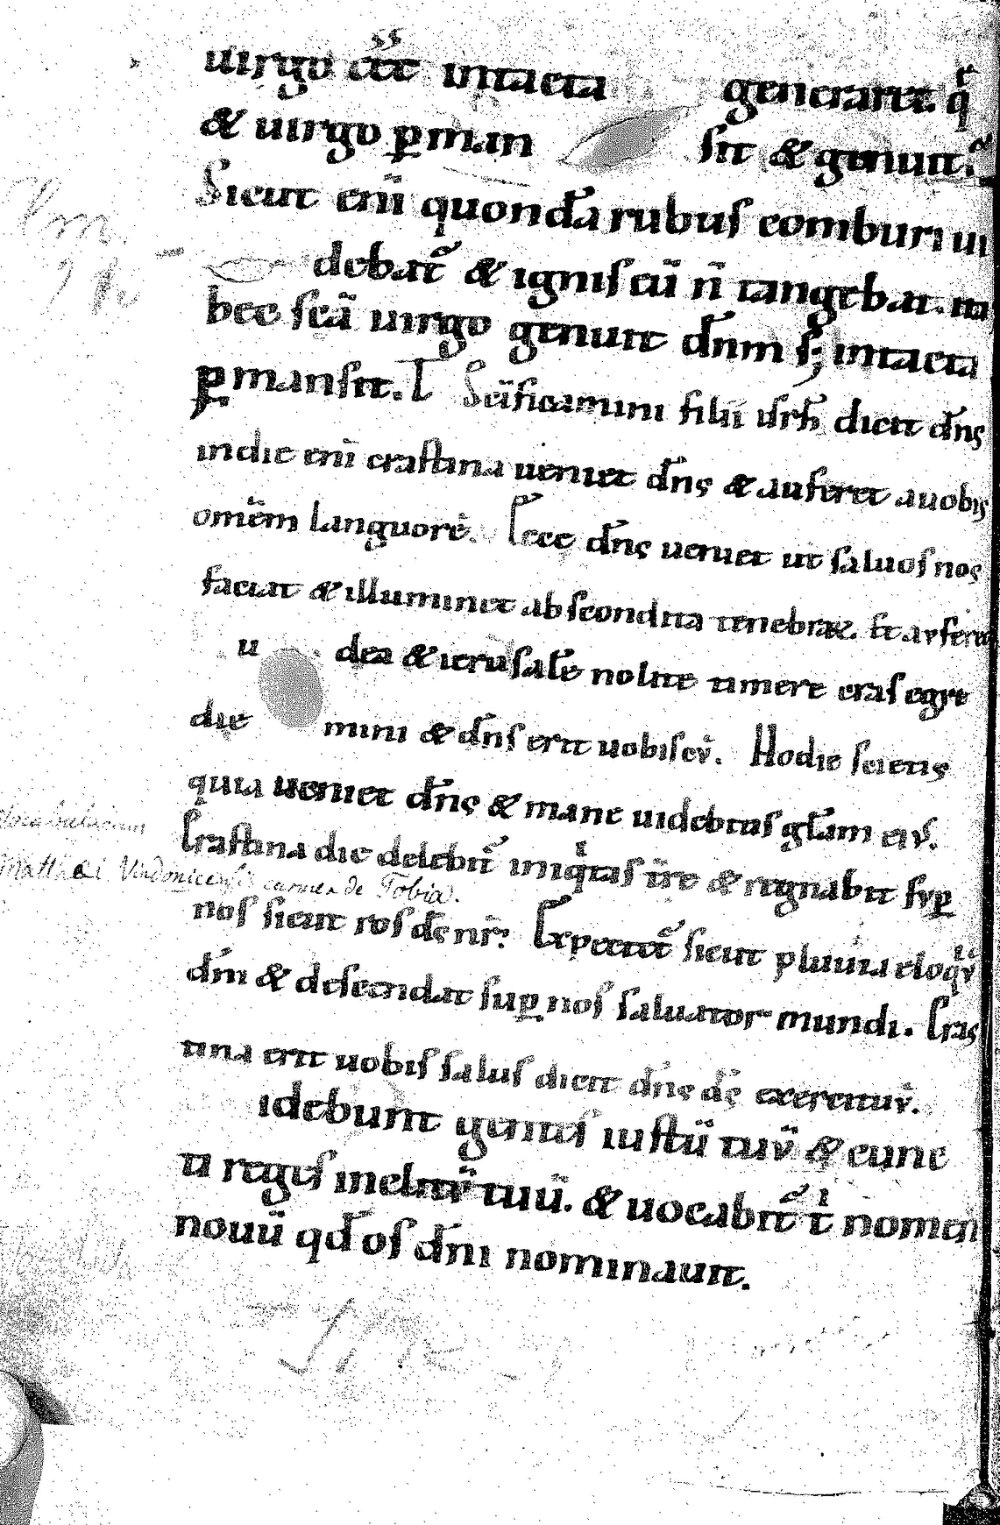 uirgo eēt intacta generaret. q̄
& uirgo p̱man sit & genuit.
Sicut eni̅ quonda̅ rubus comburi ui
debat᷑ & ignis eu̅ n̅ tangebat. ita
hec sc̅a uirgo genuit dn̅m s; intacta
p̱mansit. L Sc̅ificamini filii isrl̅ dicit dn̅s
in die eni̅ crastina ueniet dn̅s & auferet a uobis
omēm languore̅. Ecce dn̅s ueniet ut saluos nos
faciat & illuminet abscondita tenebraꝝ. Et auferet
u dea & ierusale̅ nolite timere cras egre
die mini & dn̅s erit uobiscu̅. Hodie scietis
quia ueniet dn̅s & mane uidebitis gl̅am eiꝰ.
Crastina die delebit᷑ iniq̇tas tr̅e & regnabit sup̱
Matthaei Vindonicensis carmen de Tobia.
nos sicut ros ds̅ nr̅. Expectet᷑ sicut pluuia eloqu̅
dn̅i & descendat sup̱ nos saluator mundi. Cras
tina erit uobis salus dicit dn̅s ds̅ exercituu̅.
idebunt gentes iustu̅ tuu̅ & cunc
ti reges inclitu̅ tuu̅. & uocabit᷑ t̍ nomen
nouu̅ qd̅ os dn̅i nominauit.